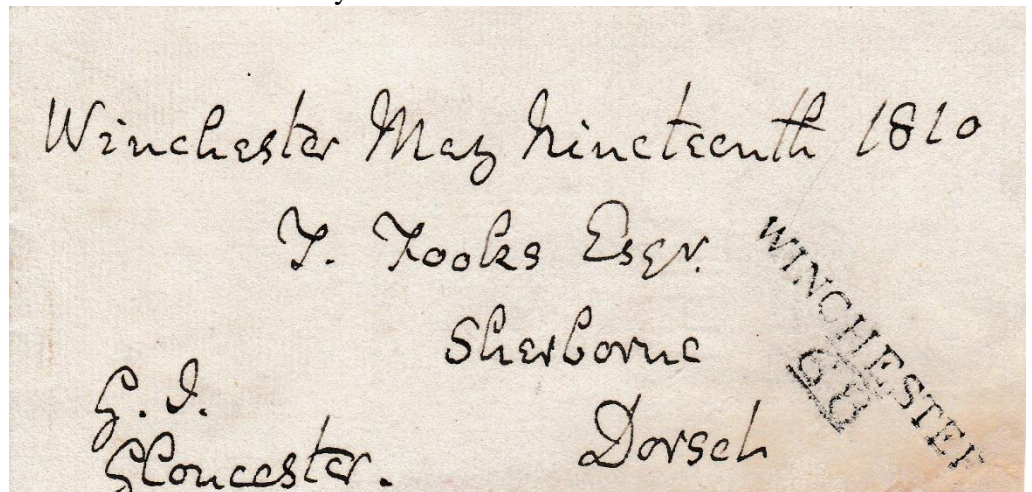 Winchester May Nineteenth 1810
T. Tooks Esqr.
Sherborne
Dorset
G. I.
Gloucester.
WINCHESTER